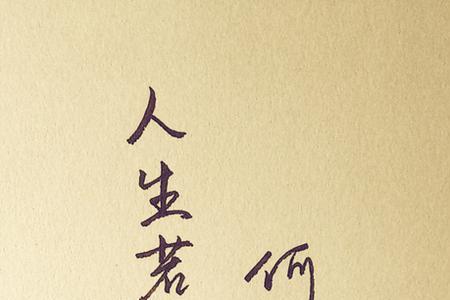 人生若
何